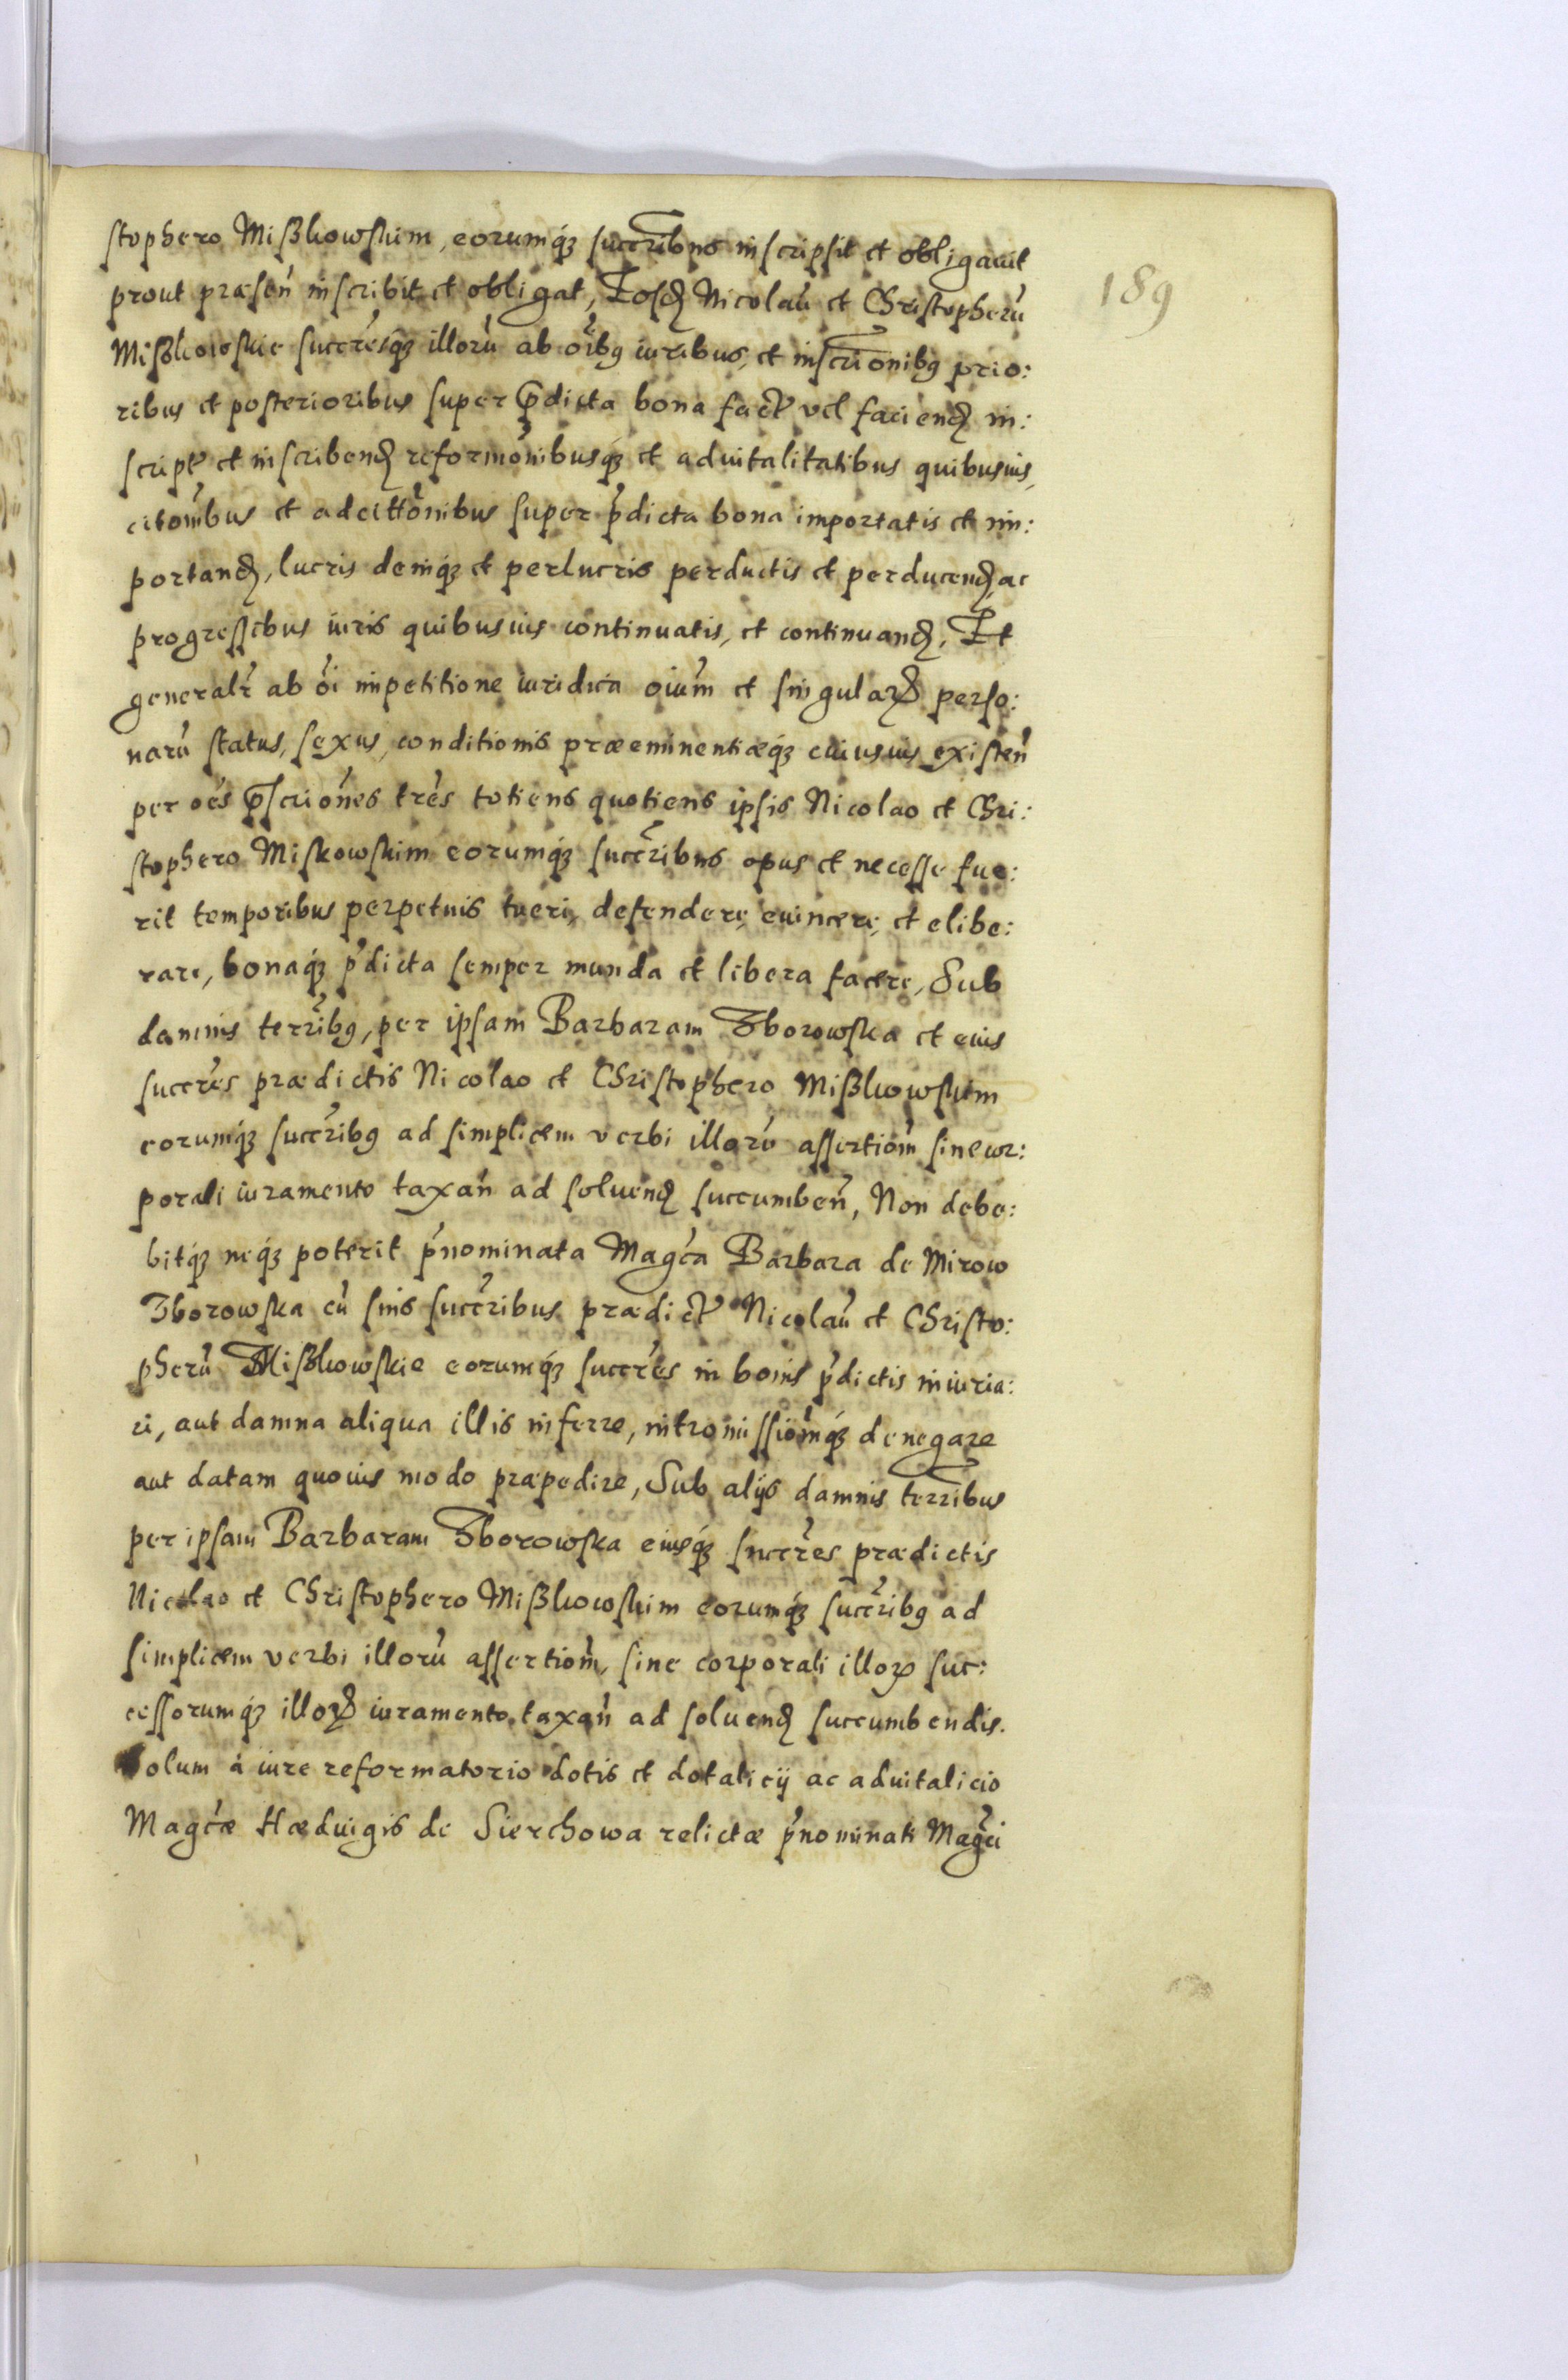 stophero Mißkowskim, eorumq́ꝫ succr̃ibus inscripsit et obligauit
prout præsen̄ inscribit et obligat, Eosd. Nicolau̇ et Christopheru̇
Mißkowskie succr̃esq́ꝫ illoru̇ ab oĩbꝯ iuribus, et inscrionibꝯ prio:
ribus et posterioribus super p̄dicta bona fact̛ vel faciend. in:
script̛ et inscribend. reformõnibusq́ꝫ et aduitalitatibus quibusuis,
citõnibus et adcittõnibus super p̃dicta bona importatis et im:
portand., lucris deniq́ꝫ et perlucris perductis et perducend. ac
progressibus iuris quibusuis continuatis, et continuand., Et
generalr̃ ab oĩ impetitione iuridica oiũm et singularꝝ perso:
naru̇ status, sexus, conditionis præeminentiæq́ꝫ cuiusuis existen̄
per oẽs p̄scriõnes tr̃es totiens quotiens ipsis Nicolao et Chri:
stophero Miskowskim eorumq́ꝫ succr̃ibus opus et necesse fue:
rit temporibus perpetuis tueri, defendere, euincere, et elibe:
rare, bonaq́ꝫ p̃dicta semper munda et libera facere, Sub
damnis terr̃ibꝯ, per ipsam Barbaram Zborowska et eius
succr̃es prædictis Nicolao et Christophero Mißkowskim
eorumq́ꝫ succr̃ibꝯ ad simplicem verbi illoru̇ assertiom̃ sine cor:
porali iuramento taxan̄ ad soluend. succumben̄, Non debe:
bitq́ꝫ neq́ꝫ poterit p̃nominata Magc̃a Barbara de Mirow
Zborowska cu̇ suis succr̃ibus prædict̛ Nicolau̇ et Christo:
pheru̇ Mißkowskie eorumq́ꝫ succr̃es in bonis p̃dictis iniuria:
ri, aut damna aliqua illis inferre, intromissiom̃q́ꝫ denegare
aut datam quouis modo præpedire, Sub alijs damnis terr̃ibus
per ipsam Barbaram Zborowska eiusq́ꝫ succr̃es prædictis
Nicolao et Christophero Mißkowskim eorumq́ꝫ succr̃ibꝯ ad
simplicem verbi illoru̇ assertiom̃, sine corporali illoꝝ suc:
cessorumq́ꝫ illoꝝ iuramento taxan̄ ad soluend. succumbendis.
Solum à iure reformatorio dotis et dotalicij ac aduitalicio
Magc̃æ Hæduigis de Sierchowa relictæ p̃nominati Magc̃i
189